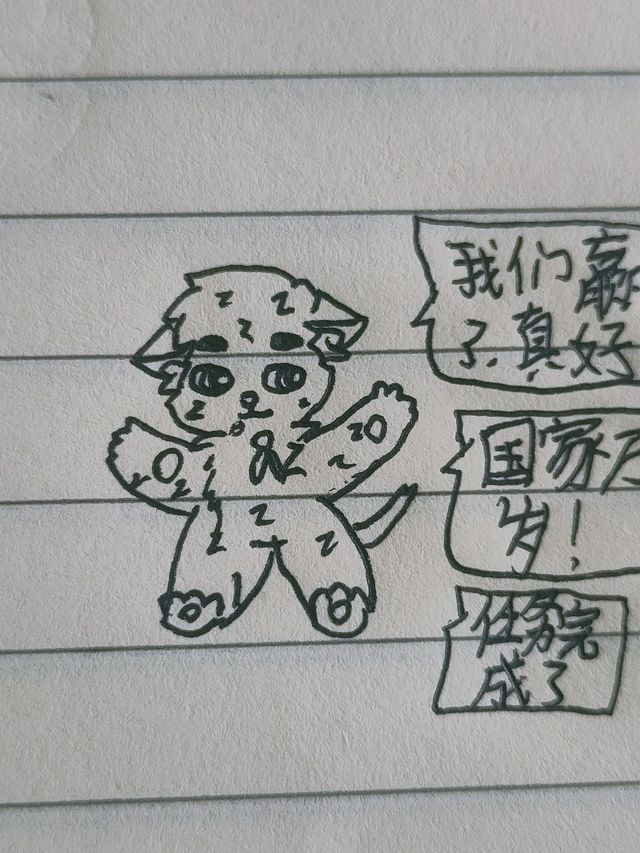 我们赢
了,真好
国家万
岁!
任务完
成了